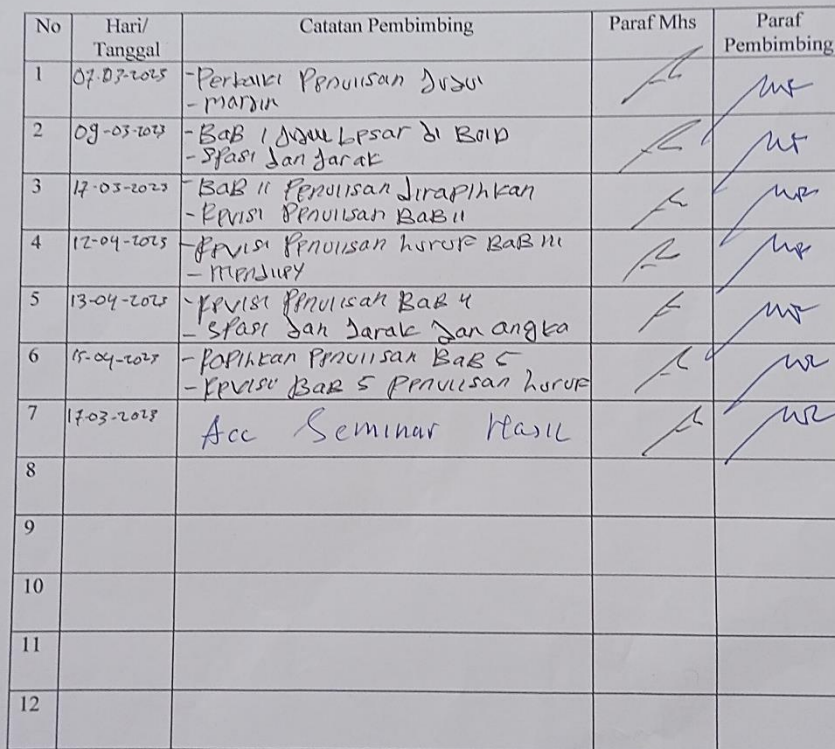 No Hari/ Tanggal Catatan Pembimbing Paraf Mhs Paraf Pembimbing
1 07-03-2023 -Perbaiki Penulisan Judul
-margin
2 09-03-2023 -BAB I Judul besar di Bold
-Spasi dan Jarak
3 17-03-2023 -BAB II Penulisan dirapihkan
-Revisi Penulisan BAB II
4 12-04-2023 -Revisi Penulisan huruf BAB III
5 13-04-2023 -Revisi Penulisan BAB 4
-Spasi dan Jarak dan angka
6 15-04-2023 -Rapihkan Penulisan BAB 5
-Revisi BAB 5 Penulisan huruf
7 17-03-2023 Acc Seminar Hasil
8
9
10
11
12